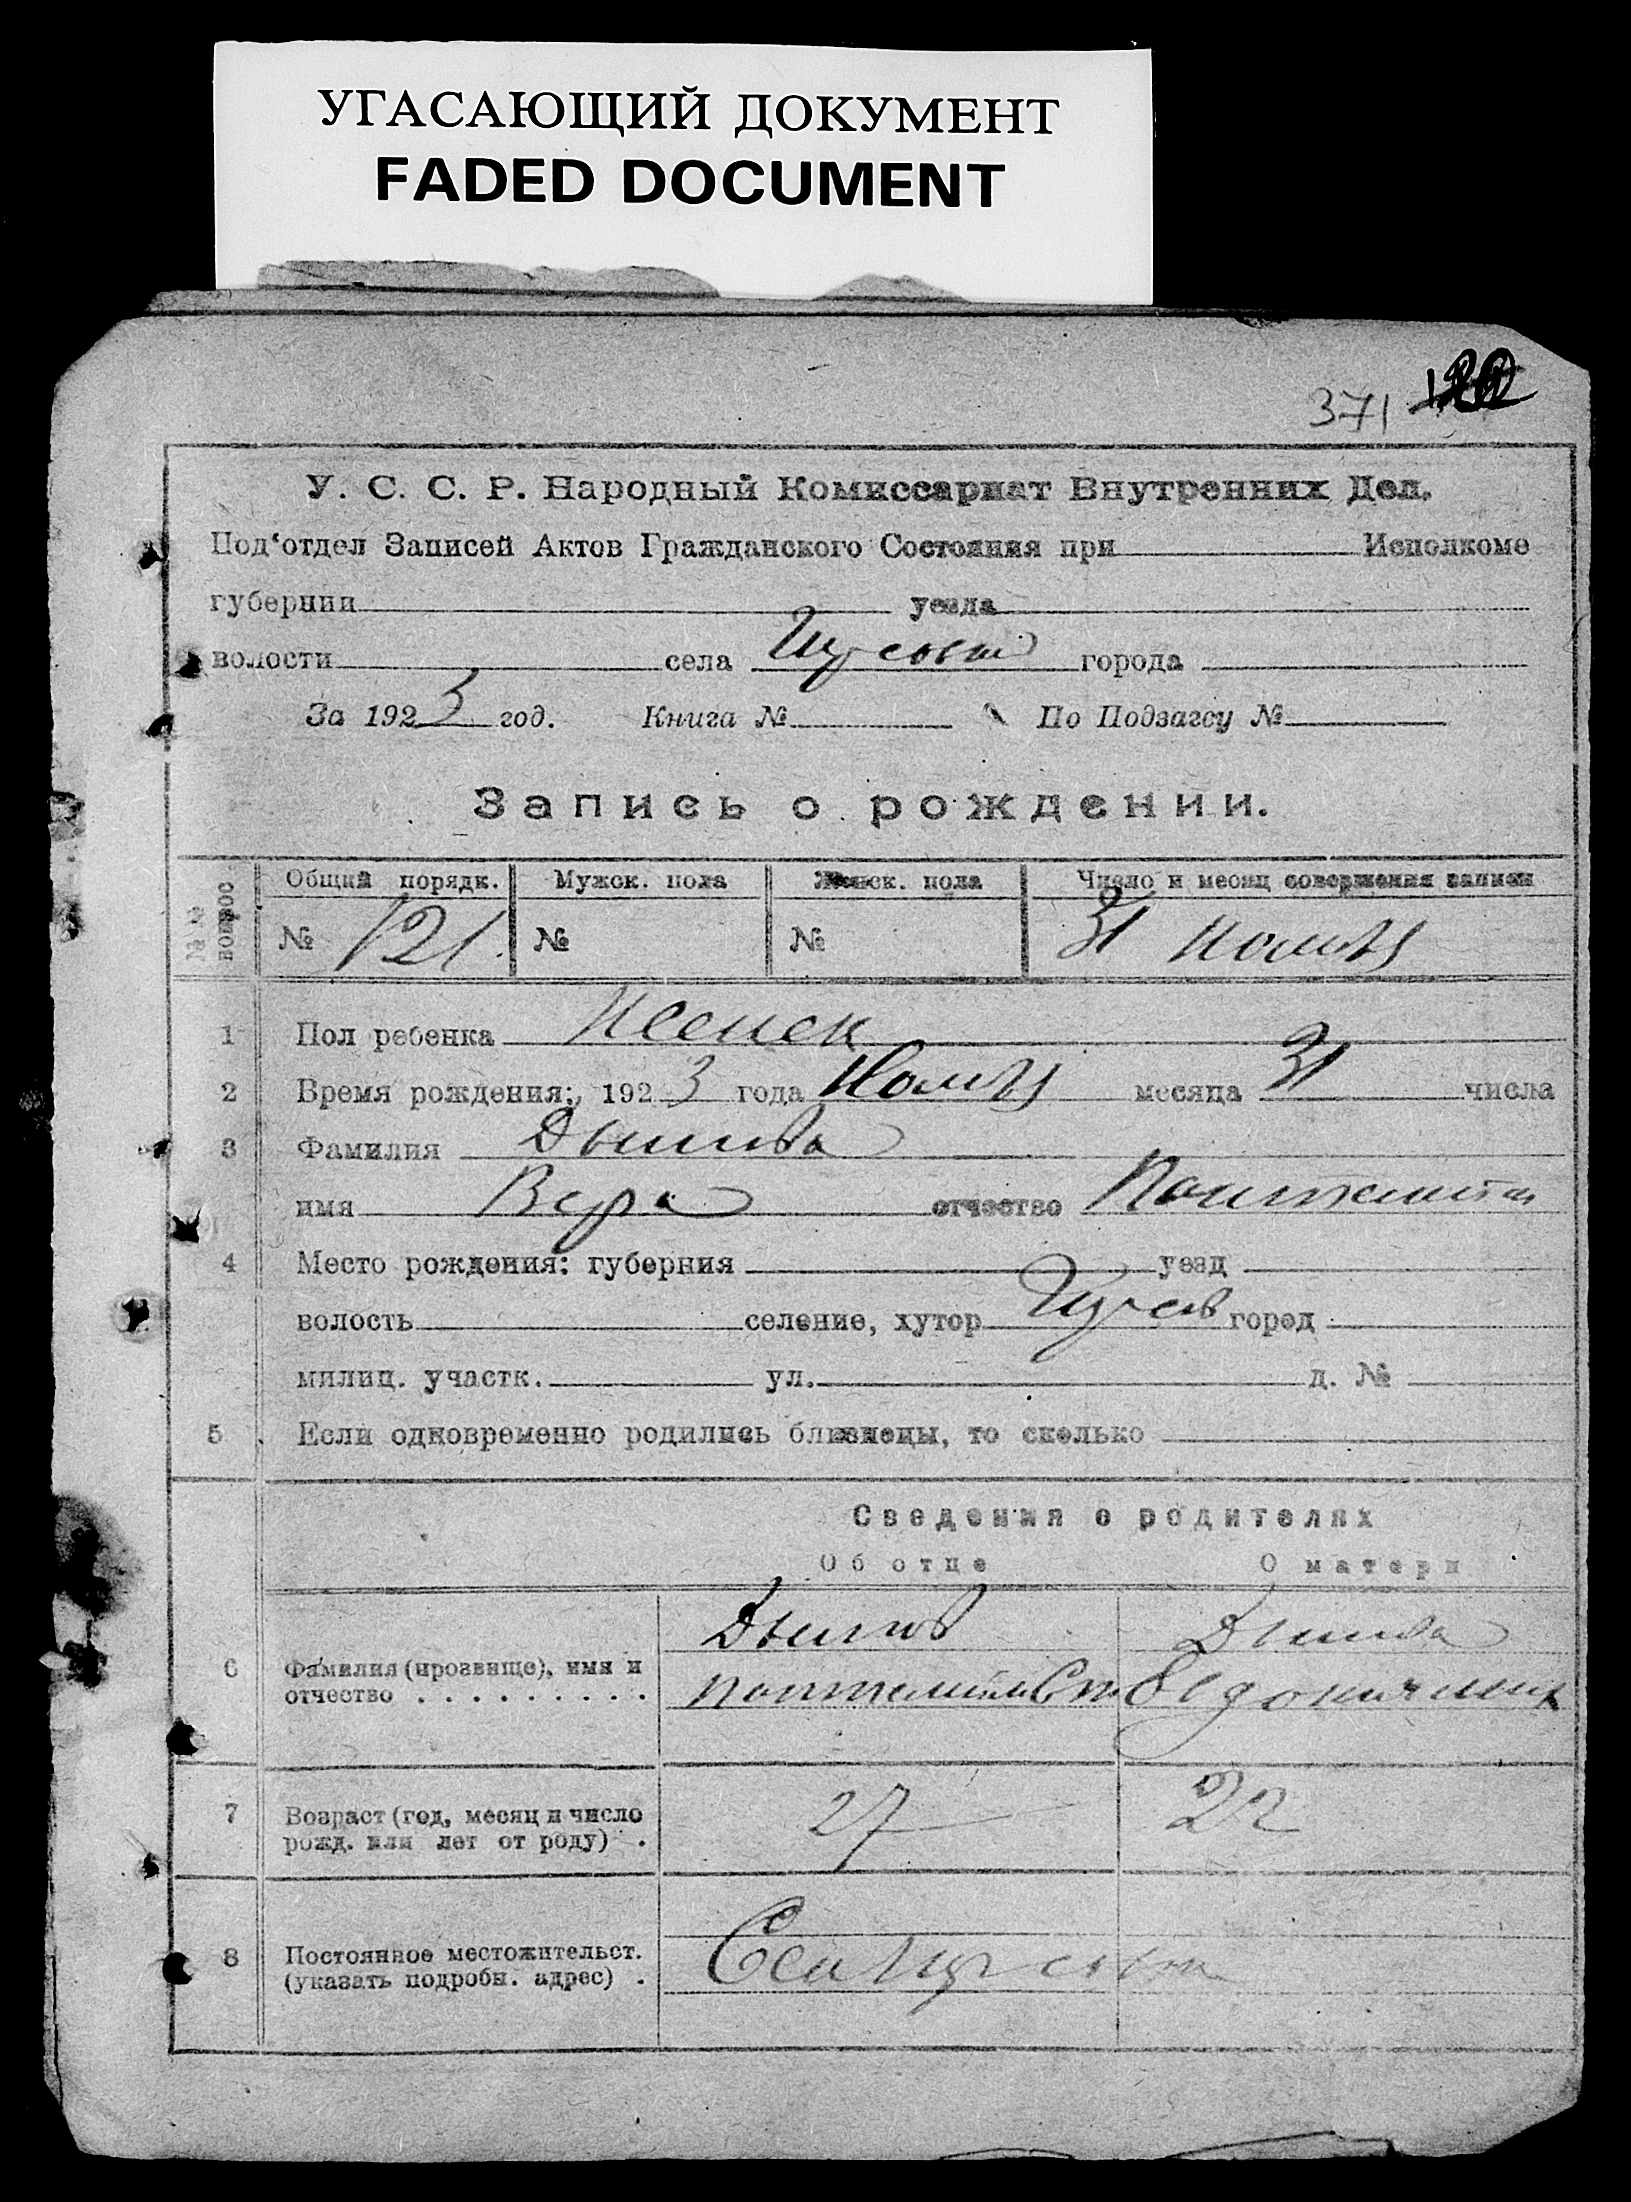 УГАСАЮЩИЙ ДОКУМЕНТ
FADED DOCUMENT
371
У. С. С. Р. Народный Комиссариат Внутренних Дел.
Под‘отдел Записей Актов Гражданского Состояния при Исполкоме
губернии уезда
волости села города
За 1923 год. Книга № По Подзагсу №
Запись о рождении.
№№ вопрос Общий порядк. Мужск. пола Женск. пола Число и месяц совершения записи
№ 121 № № 31
1 Пол ребенка Женск
2 Время рождения: 1923 года месяца 31 числа
3 Фамилия
имя Вера отчество
4 Место рождения: губерния уезд
волость селение, хутор город
милиц. участк. ул. д. №
5 Если одновременно родились близнецы, то сколько
Сведения о родителях
Об отце О матери
6 Фамилия (прозвище), имя и
отчество . . . . . . . . .
7 Возраст (год, месяц и число
рожд. или лет от роду) . 27 22
8 Постоянное местожительст.
(указать подробн. адрес) .